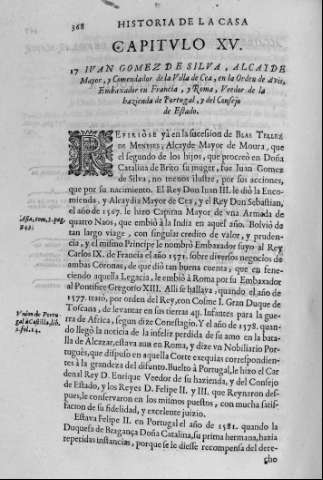 368 HISTORIA DE LA CASA
CAPITVLO XV.
17 IVAN GOMEZ DE SILVA, ALCAIDE
Mayor, y Comendador de la Villa de Cea, en la Orden de Avis,
Embaxador in Francia, y Roma, Veedor de la
hazienda de Portugal, y del Consejo
de Estado.
REFIRIOSE yà en la sucesion de BLAS TELLEZ
DE MENESES, Alcayde Mayor de Moura, que
el segundo de los hijos, que procreò en Doña
Catalina de Brito su muger, fue Juan Gomez
de Silva, no menos ilustre, por sus acciones,
que por su nacimiento. El Rey Don Iuan III. le diò la Enco-
mienda, y Alcaydia Mayor de Cea, y el Rey Don Sebastian,
el año de 1567. le hizo Capitan Mayor de vna Armada de
quatro Naos, que embiò à la India en aquel año. Bolviò de
tan largo viage, con singular credito de valor, y pruden-
cia, y el mismo Principe le nombrò Embaxador suyo al Rey
Carlos IX. de Francia el año 1571. sobre diversos negocios de
ambas Coronas, de que diò tan buena cuenta, que en fene-
ciendo aquella Legacia, le embiò à Roma por su Embaxador
al Pontifice Gregorio XIII. Alli se hallava, quando el año de
1577. tratò, por orden del Rey, con Cosme I. Gran Duque de
Toscana, de levantar en sus tierras 4y. Infantes para la guer-
ra de Africa, segun dize Conestagio. Y el año de 1578. quan-
do llegò la noticia de la infeliz perdida de su amo en la bata-
lla de Alcazar, estava aun en Roma, y dize vn Nobiliario Por-
tuguès, que dispuso en aquella Corte exequias correspondien-
tes à la grandeza del difunto. Buelto à Portugal, le hizo el Car-
denal Rey D. Enrique Veedor de su hazienda, y del Consejo
de Estado, y los Reyes D. Felipe II. y III. que Reynaron des-
pues, le conservaron en los mismos puestos, con mucha satis-
facion de su fidelidad, y excelente juizio.
Estava Felipe II. en Portugal el año de 1581. quando la
Duquesa de Bragança Doña Catalina, su prima hermana, hazia
repetidas instancias, porque se le diesse recompensa del dere-
cho
Asia, tom. 3. pag.
Vnion de Portu
gal à Castilla, lib.
2. fol. 24.